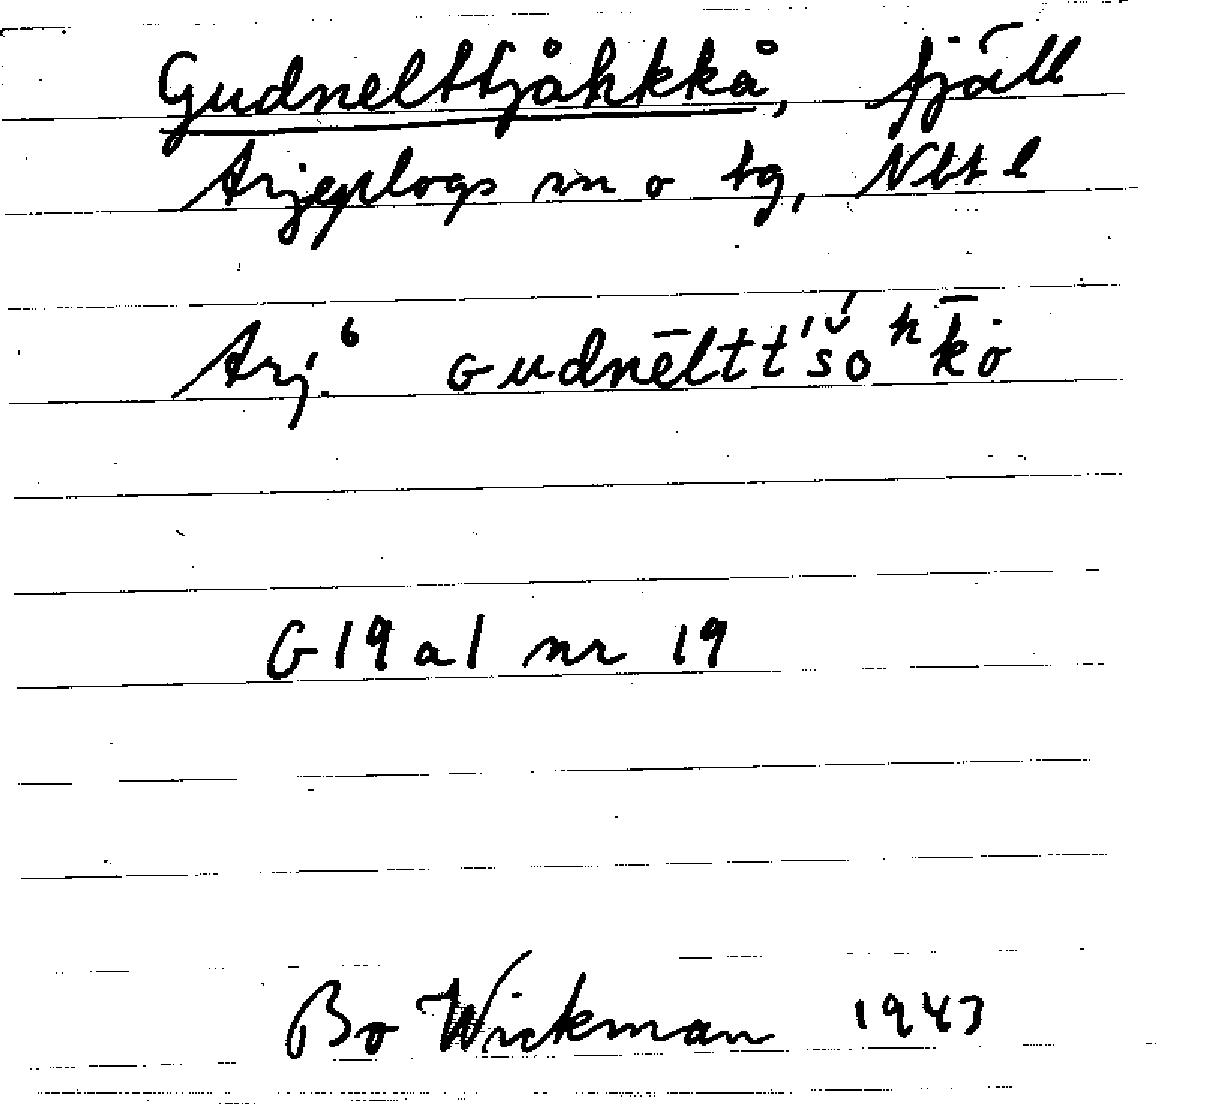 Gudnelttjåhkkå, fjäll
Arjeplogs sn o tg, Nbt l
Arj.⁶ ɢudnēltt'š́oʰk̄ȯ
G 19 a 1 nr 19
Bo Wickman 1943